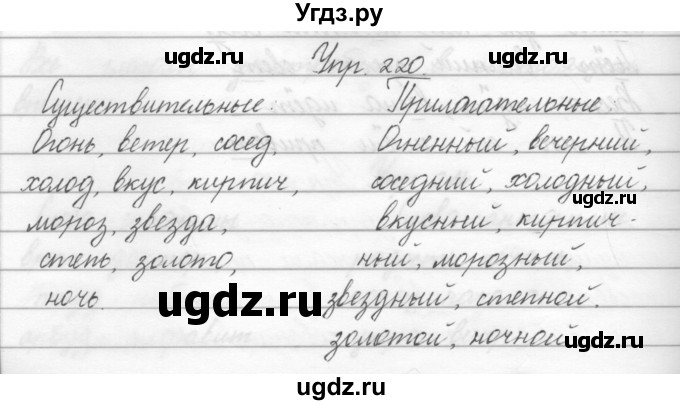 Угдз.ру
ugdz.ru ugdz.ru
Упр. 220
Существительные: Прилагательные
Огонь, ветер, сосед, Огненный, вечерний,
холод, вкус, кирпич, соседний, холодный,
мороз, звезда, вкусный, кирпич-
степь, золото, ный, морозный,
ночь. звездный, степной.
золотой, ночной
ugdz.ru ugdz.ru
ugdz.ru ugdz.ru
ugdz.ru
ugdz.ru